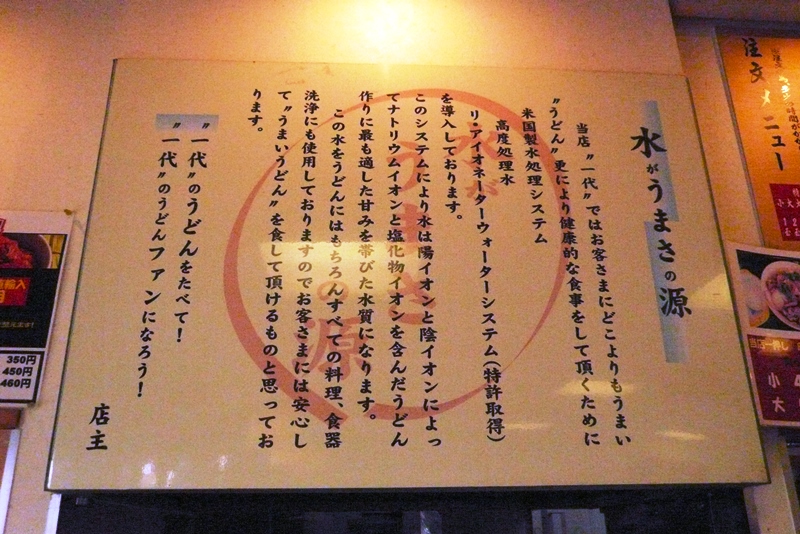 水がうまさの源
当店〝一代〟ではお客さまにどこよりもうまい
〝うどん〟更により健康的な食事をして頂くために
米国製水処理システム
高度処理水
リ・アイオネーターウォーターシステム(特許取得)
を導入しております。
このシステムにより水は陽イオンと陰イオンによっ
てナトリウムイオンと塩化物イオンを含んだうどん
作りに最も適した甘みを帯びた水質になります。
この水をうどんにはもちろんすべての料理、食器
洗浄にも使用しておりますのでお客さまには安心し
て〝うまいうどん〟を食して頂けるものと思ってお
ります。
〝一代〟のうどんをたべて!
〝一代〟のうどんファンになろう!
店主
水が
うまさ
の源
注文メニュー
350円
450円
460円
小
大